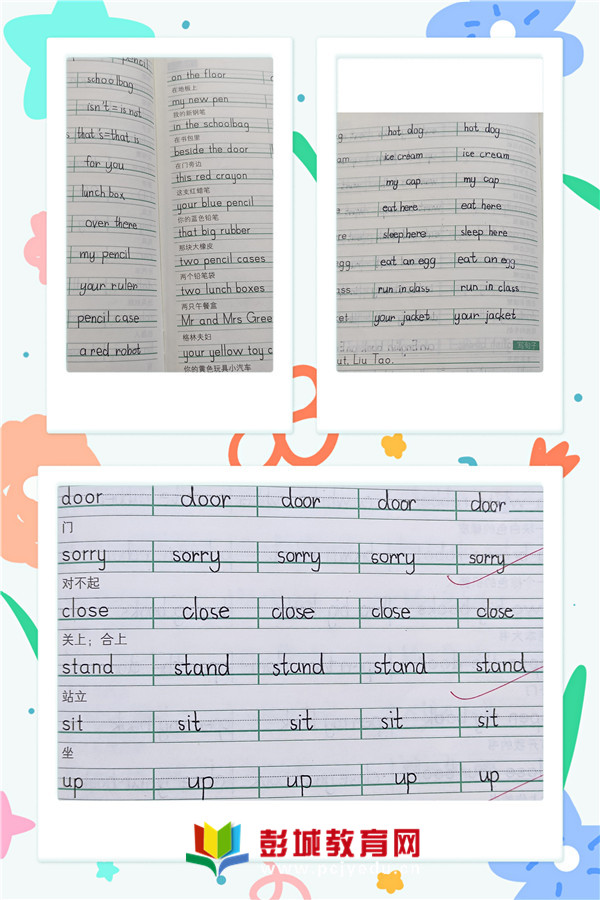 pencil
schoolbag
isn't = is not
that's=that is
for you
lunch box
over there
my pencil
your ruler
pencil case
a red robot
on the floor
在地板上
my new pen
我的新钢笔
in the schoolbag
在书包里
beside the door
在门旁边
this red crayon
这支红蜡笔
your blue pencil
你的蓝色铅笔
that big rubber
那块大橡皮
two pencil cases
两个铅笔袋
two lunch boxes
两只午餐盒
Mr and Mrs Gree
格林夫妇
your yellow toy c
你的黄色玩具小汽车
hot dog hot dog
ice cream ice cream
my cap my cap
eat here eat here
sleep here sleep here
eat an egg eat an egg
run in class run in class
your jacket your jacket
写句子
ut, Liu Tao.
door door door door door
门
sorry sorry sorry sorry sorry
对不起
close close close close close
关上；合上
stand stand stand stand stand
站立
sit sit sit sit sit
坐
up up up up up
彭城教育网